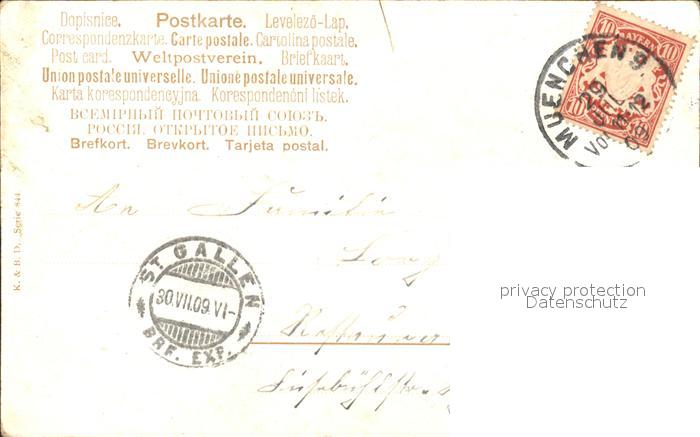 Dopisnice. Postkarte. Levelező-Lap.
Correspondenzkarte. Carte postale. Cartolina postale.
Post card. Weltpostverein. Briefkaart.
Union postale universelle. Unione postale universale.
Karta korespondencyjna. Korespondenóni listek.
ВСЕМІРНЫЙ ПОЧТОВЫЙ СОЮЗЪ.
РОССІЯ. ОТКРЫТОЕ ПИСЬМО.
Brefkort. Brevkort. Tarjeta postal.
10 BAYERN 10
10
MUENCHEN 9
29
Vor. 12
09
An Familie
ST GALLEN
30.VII.09. VI-
BRF. EXP.
K. & B. D., Serie 844
privacy protection
Datenschutz